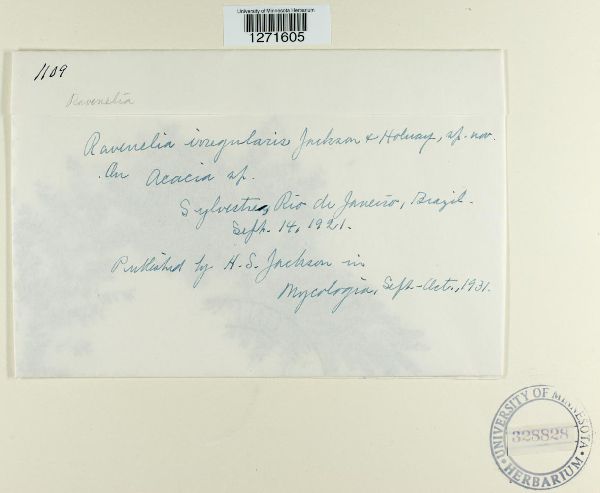 University of Minnesota Herbarium
1271605
1109
Ravenelia
Ravenelia irregularis Jackson & Holway, sp. nov.
On Acacia sp.
Sylvestre, Rio de Janeiro, Brazil.
Sept. 14, 1921.
Published by H. S. Jackson in
Mycologia, Sept-Oct., 1931.
UNIVERSITY OF MINNESOTA
328828
HERBARIUM